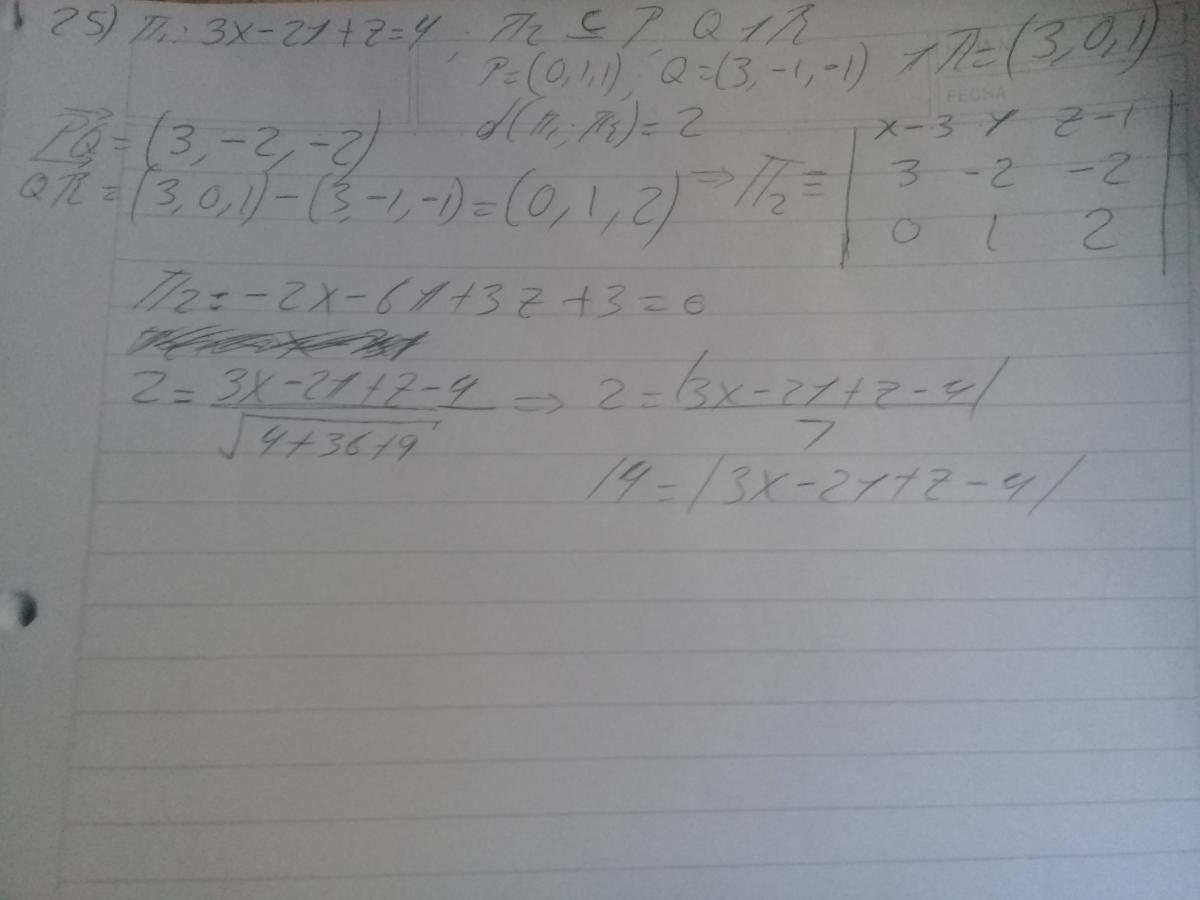 25) π₁: 3x-2y+z=4 ; π₂ ⊆ P, Q y R
P=(0,1,1); Q=(3,-1,-1) y R=(3,0,1)
FECHA
PQ=(3,-2,-2) d(π₁;π₂)=2
QR=(3,0,1)-(3,-1,-1)=(0,1,2) ⇒ π₂≡ |x-3 y z-1|
|3 -2 -2|
|0 1 2|
π₂=-2x-6y+3z+3=0
2=3x-2y+z-4/√4+36+9 ⇒ 2=|3x-2y+z-4|/7
14=|3x-2y+z-4|